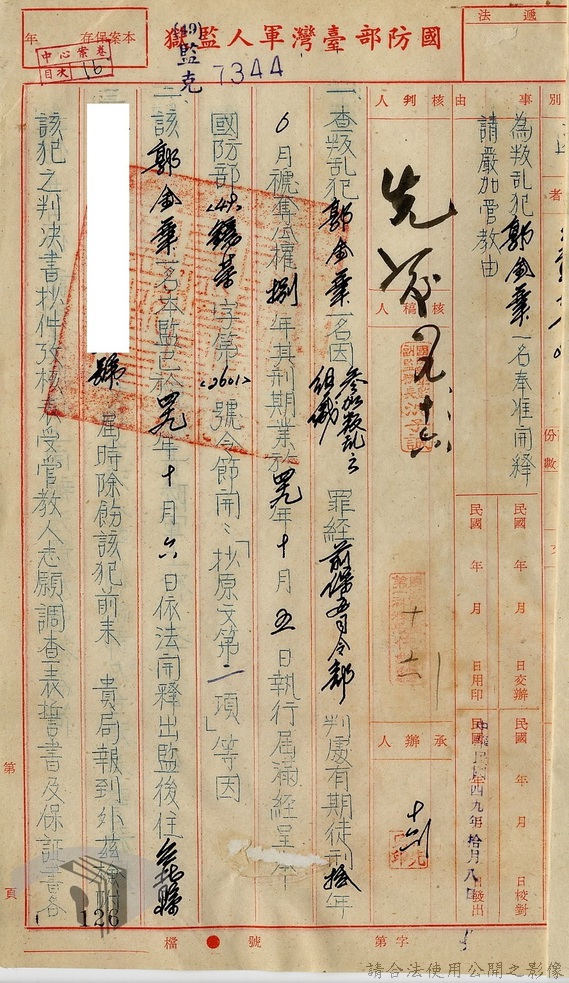 國防部臺灣軍人監獄
(49)監克
7344
法遞
年存保案本
中心案卷
目次 16
別
者
份數
事由
為叛乱犯郭金葉一名奉准開釋
請嚴加管教由
人判核
人稿核
人辦承
民國 年 月 日交辦
民國 年 月 日用印
民國 年 月 日校對
民國 年 月 日發出
中華民國四九年拾月八日
一、查叛乱犯郭金葉一名因參加叛乱之組織罪經前保安司令部判處有期徒刑拾年
6月褫奪公權捌年其刑期業於四九年十月五日執行屆滿經呈奉
國防部<49>字第<2601>號令節開:「抄原文第二項」等因
二、該郭金葉一名本監已於四九年十月六日依法開釋出監後住
三、
號屆時除飭該犯前来 貴局報到外茲檢附
該犯之判决書抄件攷核表受管教人志願調查表誓書及保証書各
第 頁
126
檔 號
第 字
請合法使用公開之影像